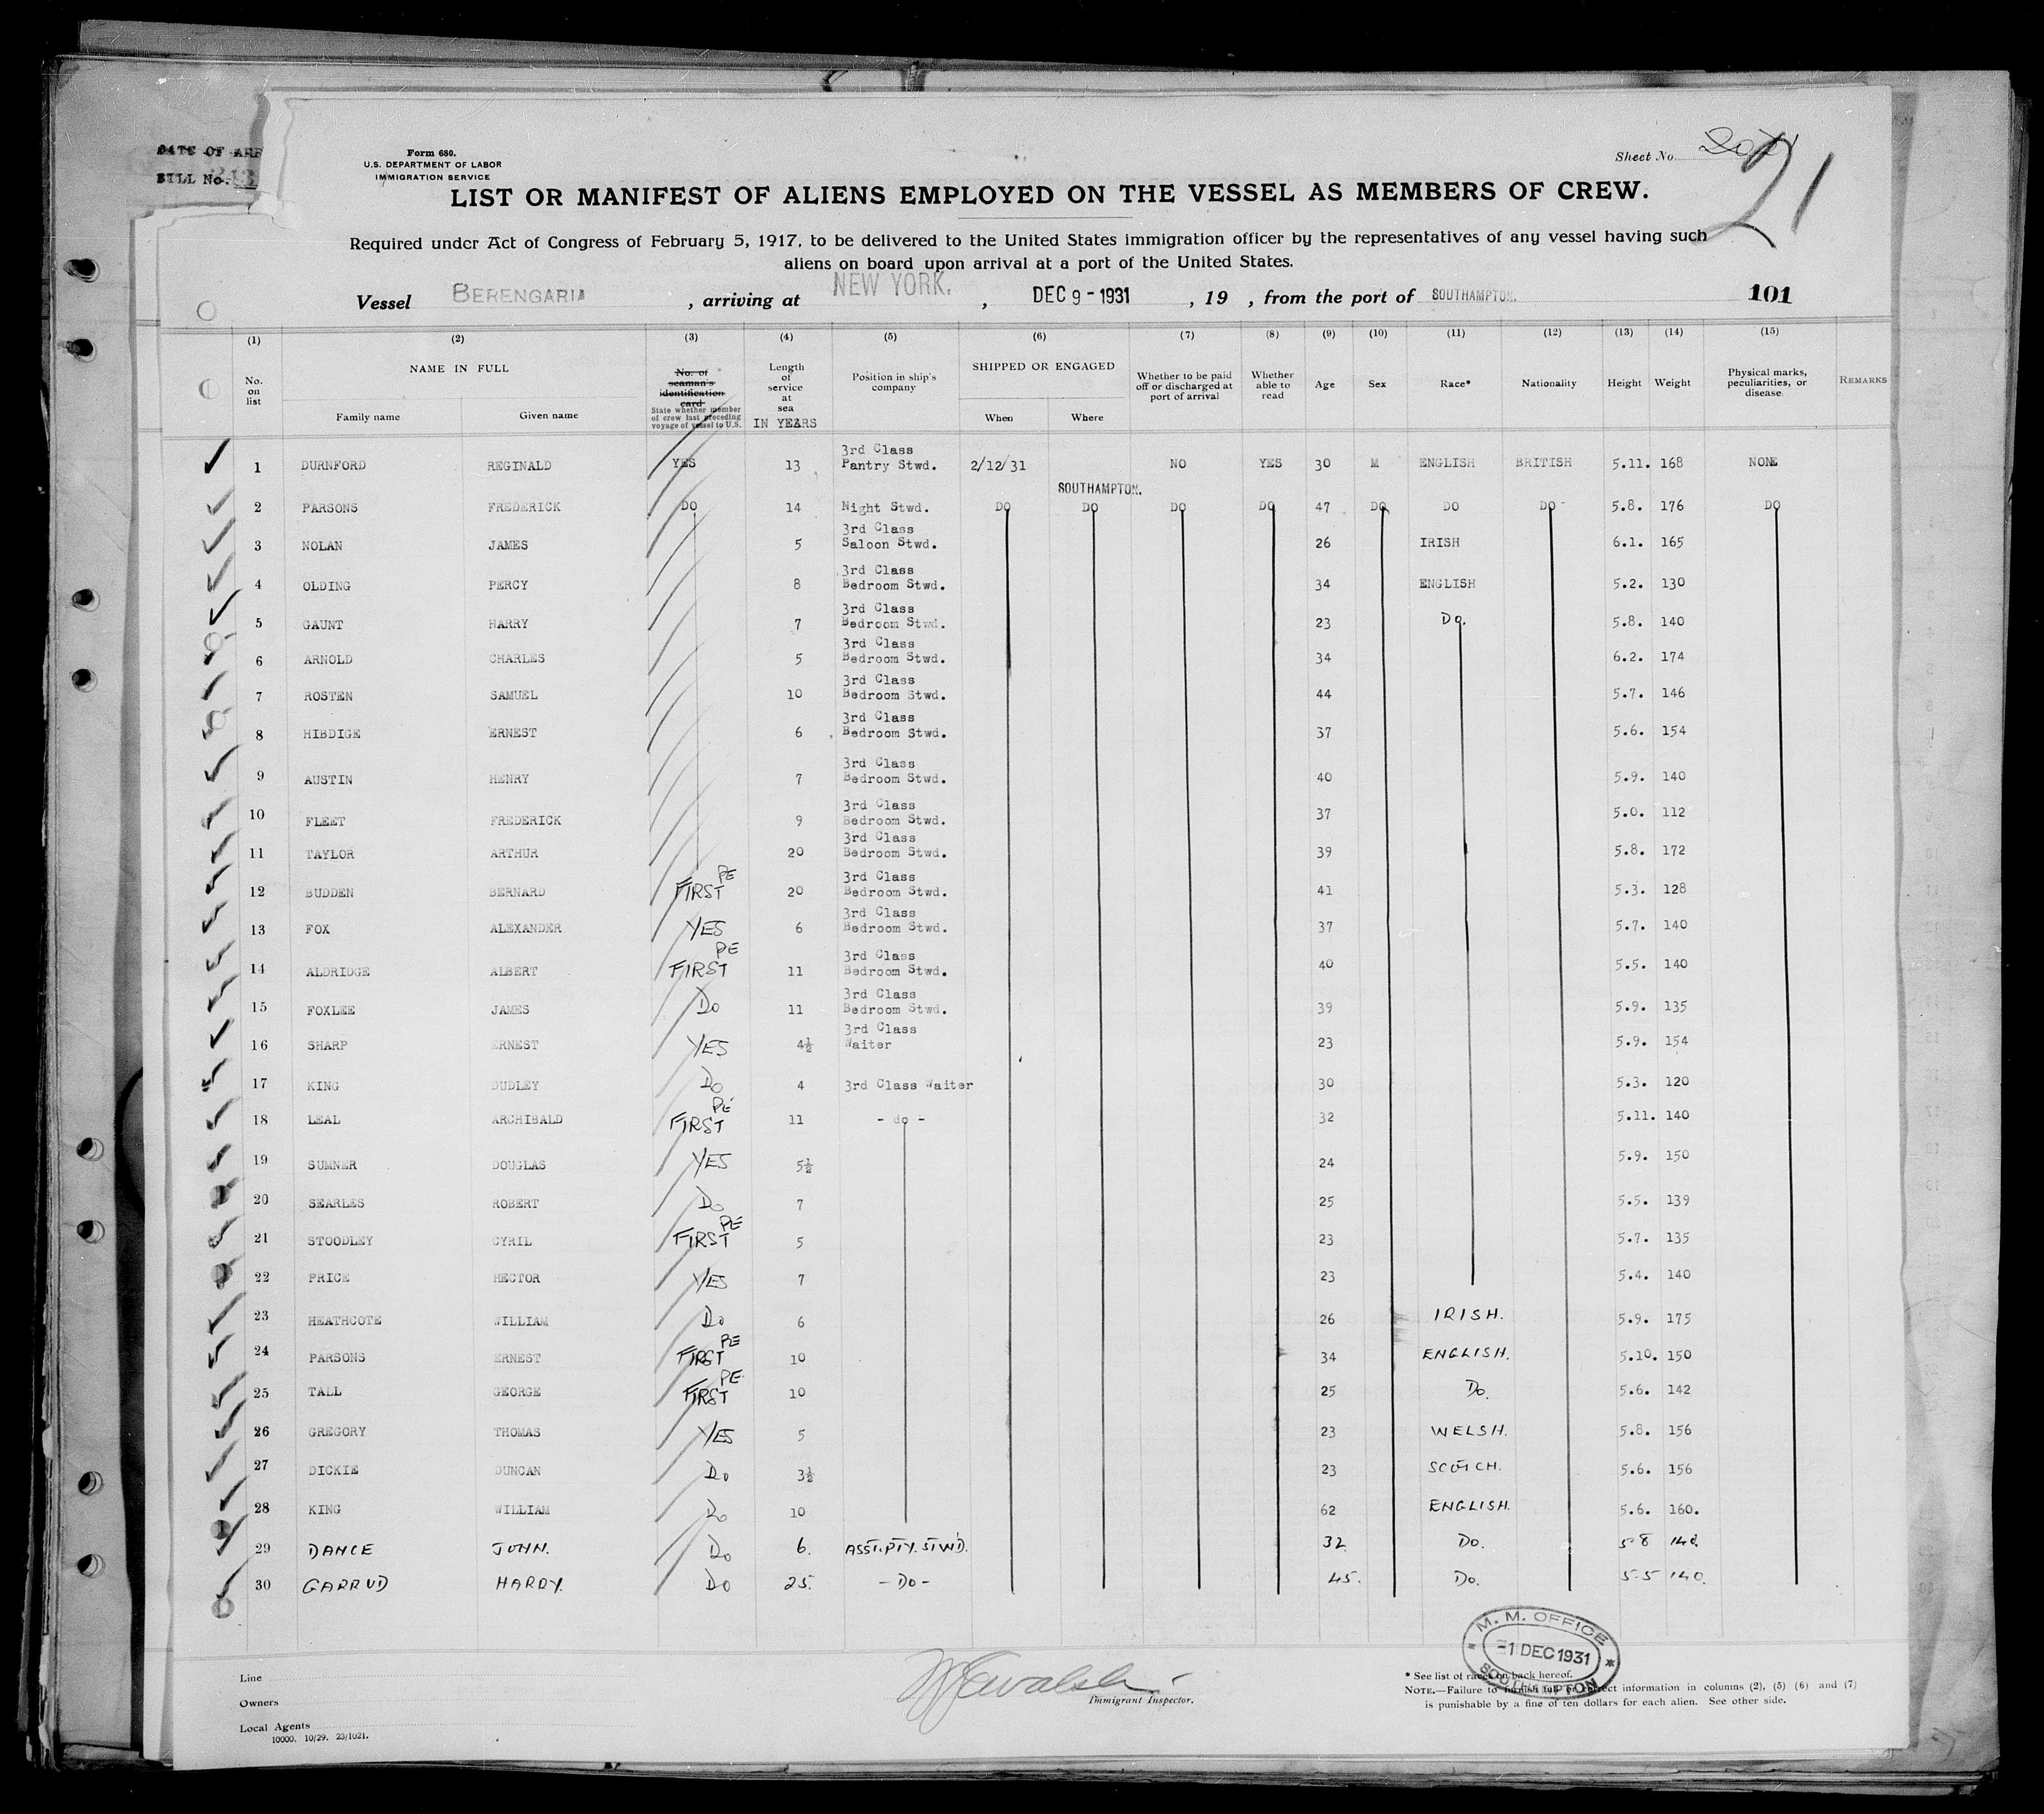 DATE OF ARR
BILL No.
Form 680.
U.S. DEPARTMENT OF LABOR
IMMIGRATION SERVICE
Sheet No.
21
LIST OR MANIFEST OF ALIENS EMPLOYED ON THE VESSEL AS MEMBERS OF CREW.
Required under Act of Congress of February 5, 1917, to be delivered to the United States immigration officer by the representatives of any vessel having such
aliens on board upon arrival at a port of the United States.
Vessel BERENGARIA , arriving at NEW YORK. , DEC 9 - 1931 , 19 , from the port of SOUTHAMPTON. 101
(1) (2) (3) (4) (5) (6) (7) (8) (9) (10) (11) (12) (13) (14) (15)
No. on list NAME IN FULL Family name Given name No. of seaman's identification card State whether member of crew last preceding voyage of vessel to U.S. Length of service at sea IN YEARS Position in ship's company SHIPPED OR ENGAGED When Where Whether to be paid off or discharged at port of arrival Whether able to read Age Sex Race* Nationality Height Weight Physical marks, peculiarities, or disease REMARKS
1 DURNFORD REGINALD YES 13 3rd Class Pantry Stwd. 2/12/31 SOUTHAMPTON. NO YES 30 M ENGLISH BRITISH 5.11. 168 NONE
2 PARSONS FREDERICK DO 14 Night Stwd. DO DO DO DO 47 DO DO DO 5.8. 176 DO
3 NOLAN JAMES 5 3rd Class Saloon Stwd. 26 IRISH 6.1. 165
4 OLDING PERCY 8 3rd Class Bedroom Stwd. 34 ENGLISH 5.2. 130
5 GAUNT HARRY 7 3rd Class Bedroom Stwd. 23 Do. 5.8. 140
6 ARNOLD CHARLES 5 3rd Class Bedroom Stwd. 34 6.2. 174
7 ROSTEN SAMUEL 10 3rd Class Bedroom Stwd. 44 5.7. 146
8 HIBDIGE ERNEST 6 3rd Class Bedroom Stwd. 37 5.6. 154
9 AUSTIN HENRY 7 3rd Class Bedroom Stwd. 40 5.9. 140
10 FLEET FREDERICK 9 3rd Class Bedroom Stwd. 37 5.0. 112
11 TAYLOR ARTHUR 20 3rd Class Bedroom Stwd. 39 5.8. 172
12 BUDDEN BERNARD FIRST PE 20 3rd Class Bedroom Stwd. 41 5.3. 128
13 FOX ALEXANDER YES 6 3rd Class Bedroom Stwd. 37 5.7. 140
14 ALDRIDGE ALBERT FIRST PE 11 3rd Class Bedroom Stwd. 40 5.5. 140
15 FOXLEE JAMES Do 11 3rd Class Bedroom Stwd. 39 5.9. 135
16 SHARP ERNEST YES 4½ 3rd Class Waiter 23 5.9. 154
17 KING DUDLEY Do 4 3rd Class Waiter 30 5.3. 120
18 LEAL ARCHIBALD FIRST PE 11 - do - 32 5.11. 140
19 SUMNER DOUGLAS YES 5½ 24 5.9. 150
20 SEARLES ROBERT Do 7 25 5.5. 139
21 STOODLEY CYRIL FIRST PE 5 23 5.7. 135
22 PRICE HECTOR YES 7 23 5.4. 140
23 HEATHCOTE WILLIAM Do 6 26 IRISH. 5.9. 175
24 PARSONS ERNEST FIRST PE 10 34 ENGLISH. 5.10. 150
25 TALL GEORGE FIRST PE. 10 25 Do. 5.6. 142
26 GREGORY THOMAS YES 5 23 WELSH. 5.8. 156
27 DICKIE DUNCAN Do 3½ 23 SCOTCH. 5.6. 156
28 KING WILLIAM Do 10 62 ENGLISH. 5.6. 160.
29 DANCE JOHN. Do 6. ASST. PTY. STWD. 32 Do. 5-8 140.
30 GARRUD HARRY. Do 25. - Do - 45. Do. 5-5 140.
M. M. OFFICE
-1 DEC 1931
SOUTHAMPTON
Line
Owners
Local Agents
10000, 10/29. 23/1021.
Immigrant Inspector.
* See list of races on back hereof.
NOTE.—Failure to furnish full or correct information in columns (2), (5) (6) and (7)
is punishable by a fine of ten dollars for each alien. See other side.